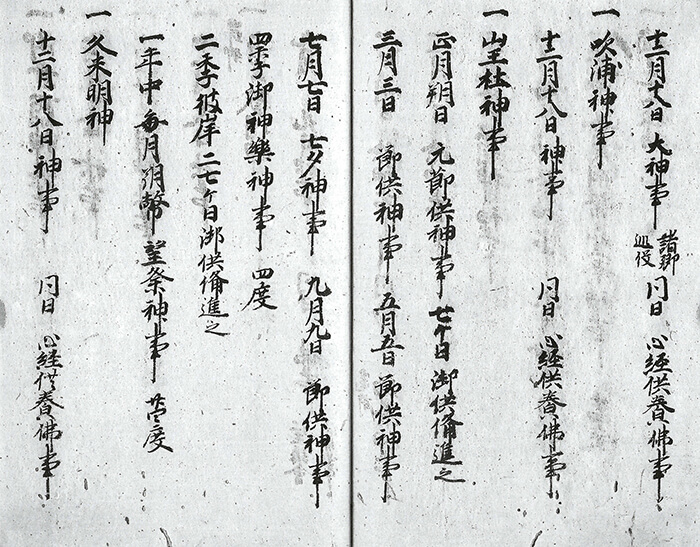 十二月十八日 大神事 諸郷 巡役 同日 心経供養佛事
一 吹浦神事
十二月十八日 神事 同日 心経供養佛事
一 山王社神事
正月朔日 元節供神事 七ケ日御供備進之
三月三日 節供神事 五月五日 節供神事
七月七日 七夕神事 九月九日 節供神事
四季御神樂神事 四度
二季彼岸 二七ケ日御供備進之
一年中毎月朔幣 望祭神事 廿四度
一 久来明神
十二月十八日神事 同日 心経供養佛事